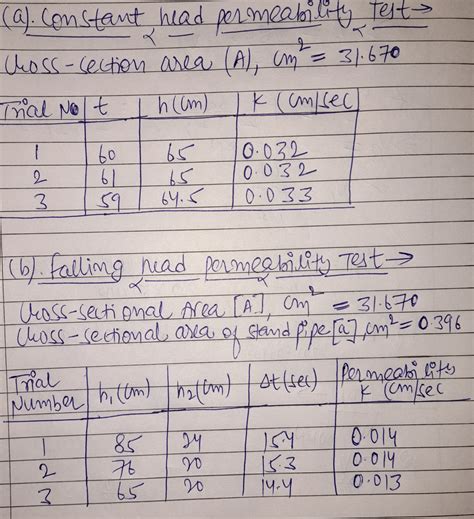 (a). Constant head permeability Test→
Cross-section area (A), cm² = 31.670
Trial No t h(cm) K (cm/sec
1 60 65 0.032
2 61 65 0.032
3 59 64.5 0.033
(b). Falling head permeability Test→
Cross-sectional Area [A], cm² = 31.670
Cross-sectional area of stand pipe [a], cm² = 0.396
Trial Number h₁(cm) h₂(cm) Δt(sec) Permeability K (cm/sec
1 85 24 15.4 0.014
2 76 20 15.3 0.014
3 65 20 14.4 0.013